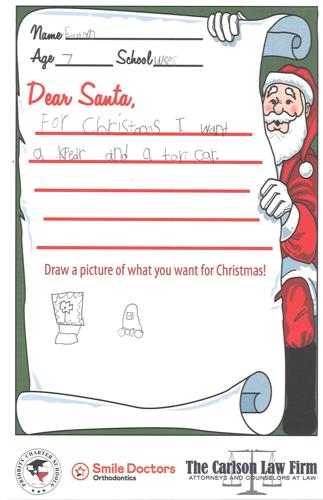 Name
Age 7 School
Dear Santa,
For Christmas I want
a and a car.
Draw a picture of what you want for Christmas!
PRIORITY CHARTER SCHOOLS
Smile Doctors
Orthodontics
The Carlson Law Firm
ATTORNEYS AND COUNSELORS AT LAW